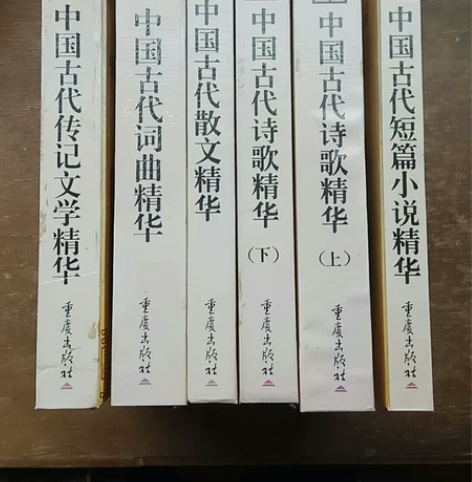 中国古代传记文学精华
重庆出版社
中国古代词曲精华
重庆出版社
中国古代散文精华
重庆出版社
中国古代诗歌精华
（下）
重庆出版社
中国古代诗歌精华
（上）
重庆出版社
中国古代短篇小说精华
重庆出版社